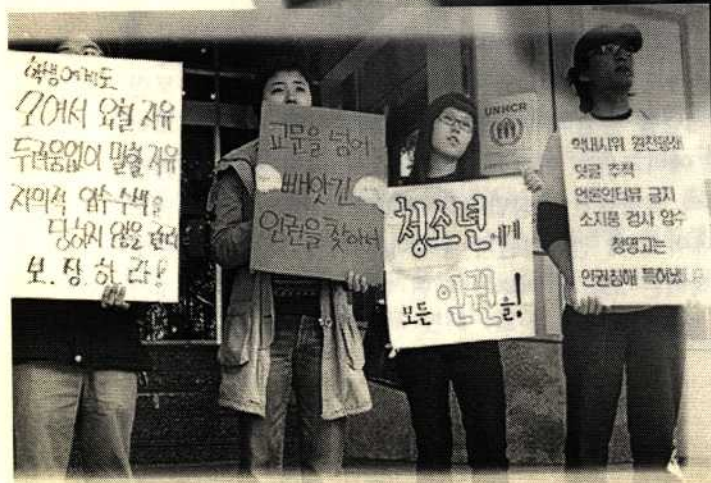 학생에게도
모여서 요구할 자유
두려움없이 말할 자유
자의적 압수수색을
당하지 않을 권리
보.장.하.라!
교문을 넘어
빼앗긴
인권을 찾아서
청소년에게
모든 인권을!
UNHCR
학내시위 원천봉쇄
덧글 추적
언론인터뷰 금지
소지품 검사 압수
청명고는
인권침해 특허냈